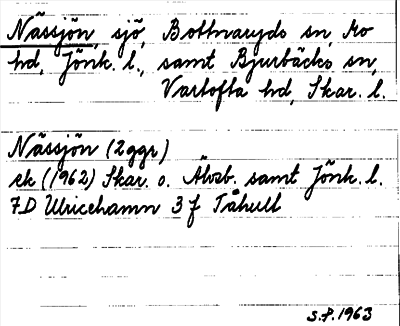 Nässjön, sjö, Bottnaryds sn, Mo
hd, Jönk. l., samt Bjurbäcks sn,
Vartofta hd, Skar. l.
Nässjön (2ggr)
ek (1962) Skar. o. Älvsb. samt Jönk. l.
7D Ulricehamn 3 f Tåhult
S.P. 1963